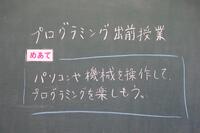 プログラミング出前授業
めあて
パソコンや機械を操作して、
プログラミングを楽しもう。